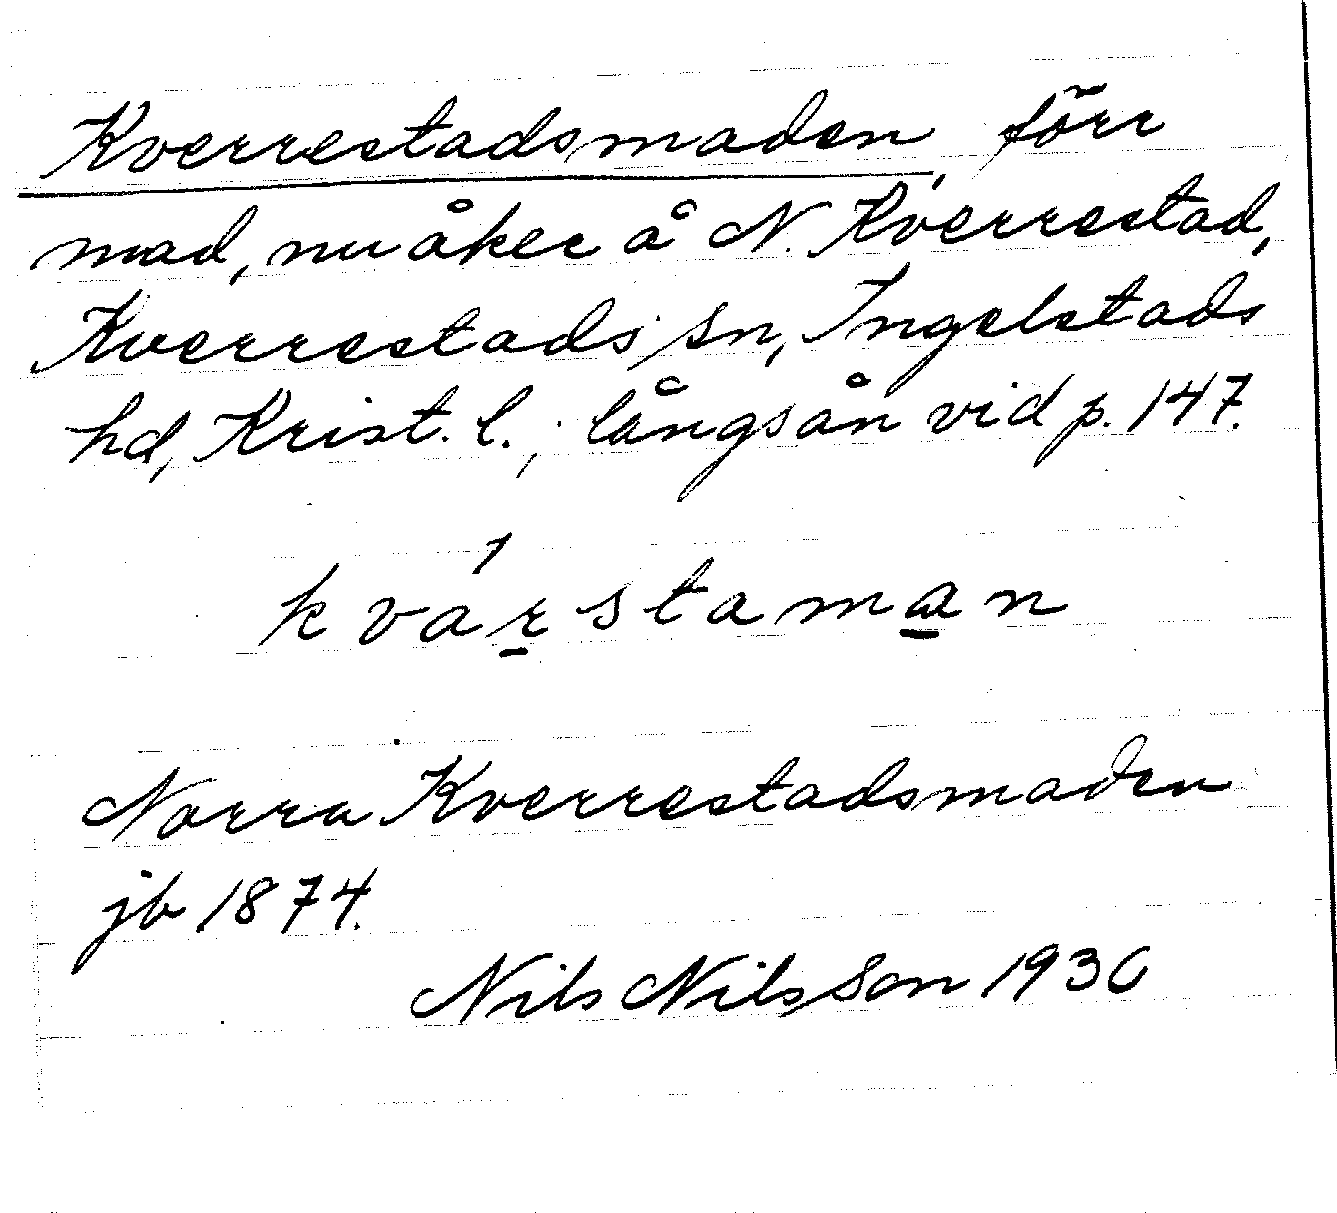 Kverrestadsmaden, förr
mad, nu åker å N. Kverrestad,
Kverrestads sn, Ingelstads
hd, Krist. l.; långs ån vid p. 147.
kvárstaman
Norra Kverrestadsmaden
jb 1874.
Nils Nilsson 1930